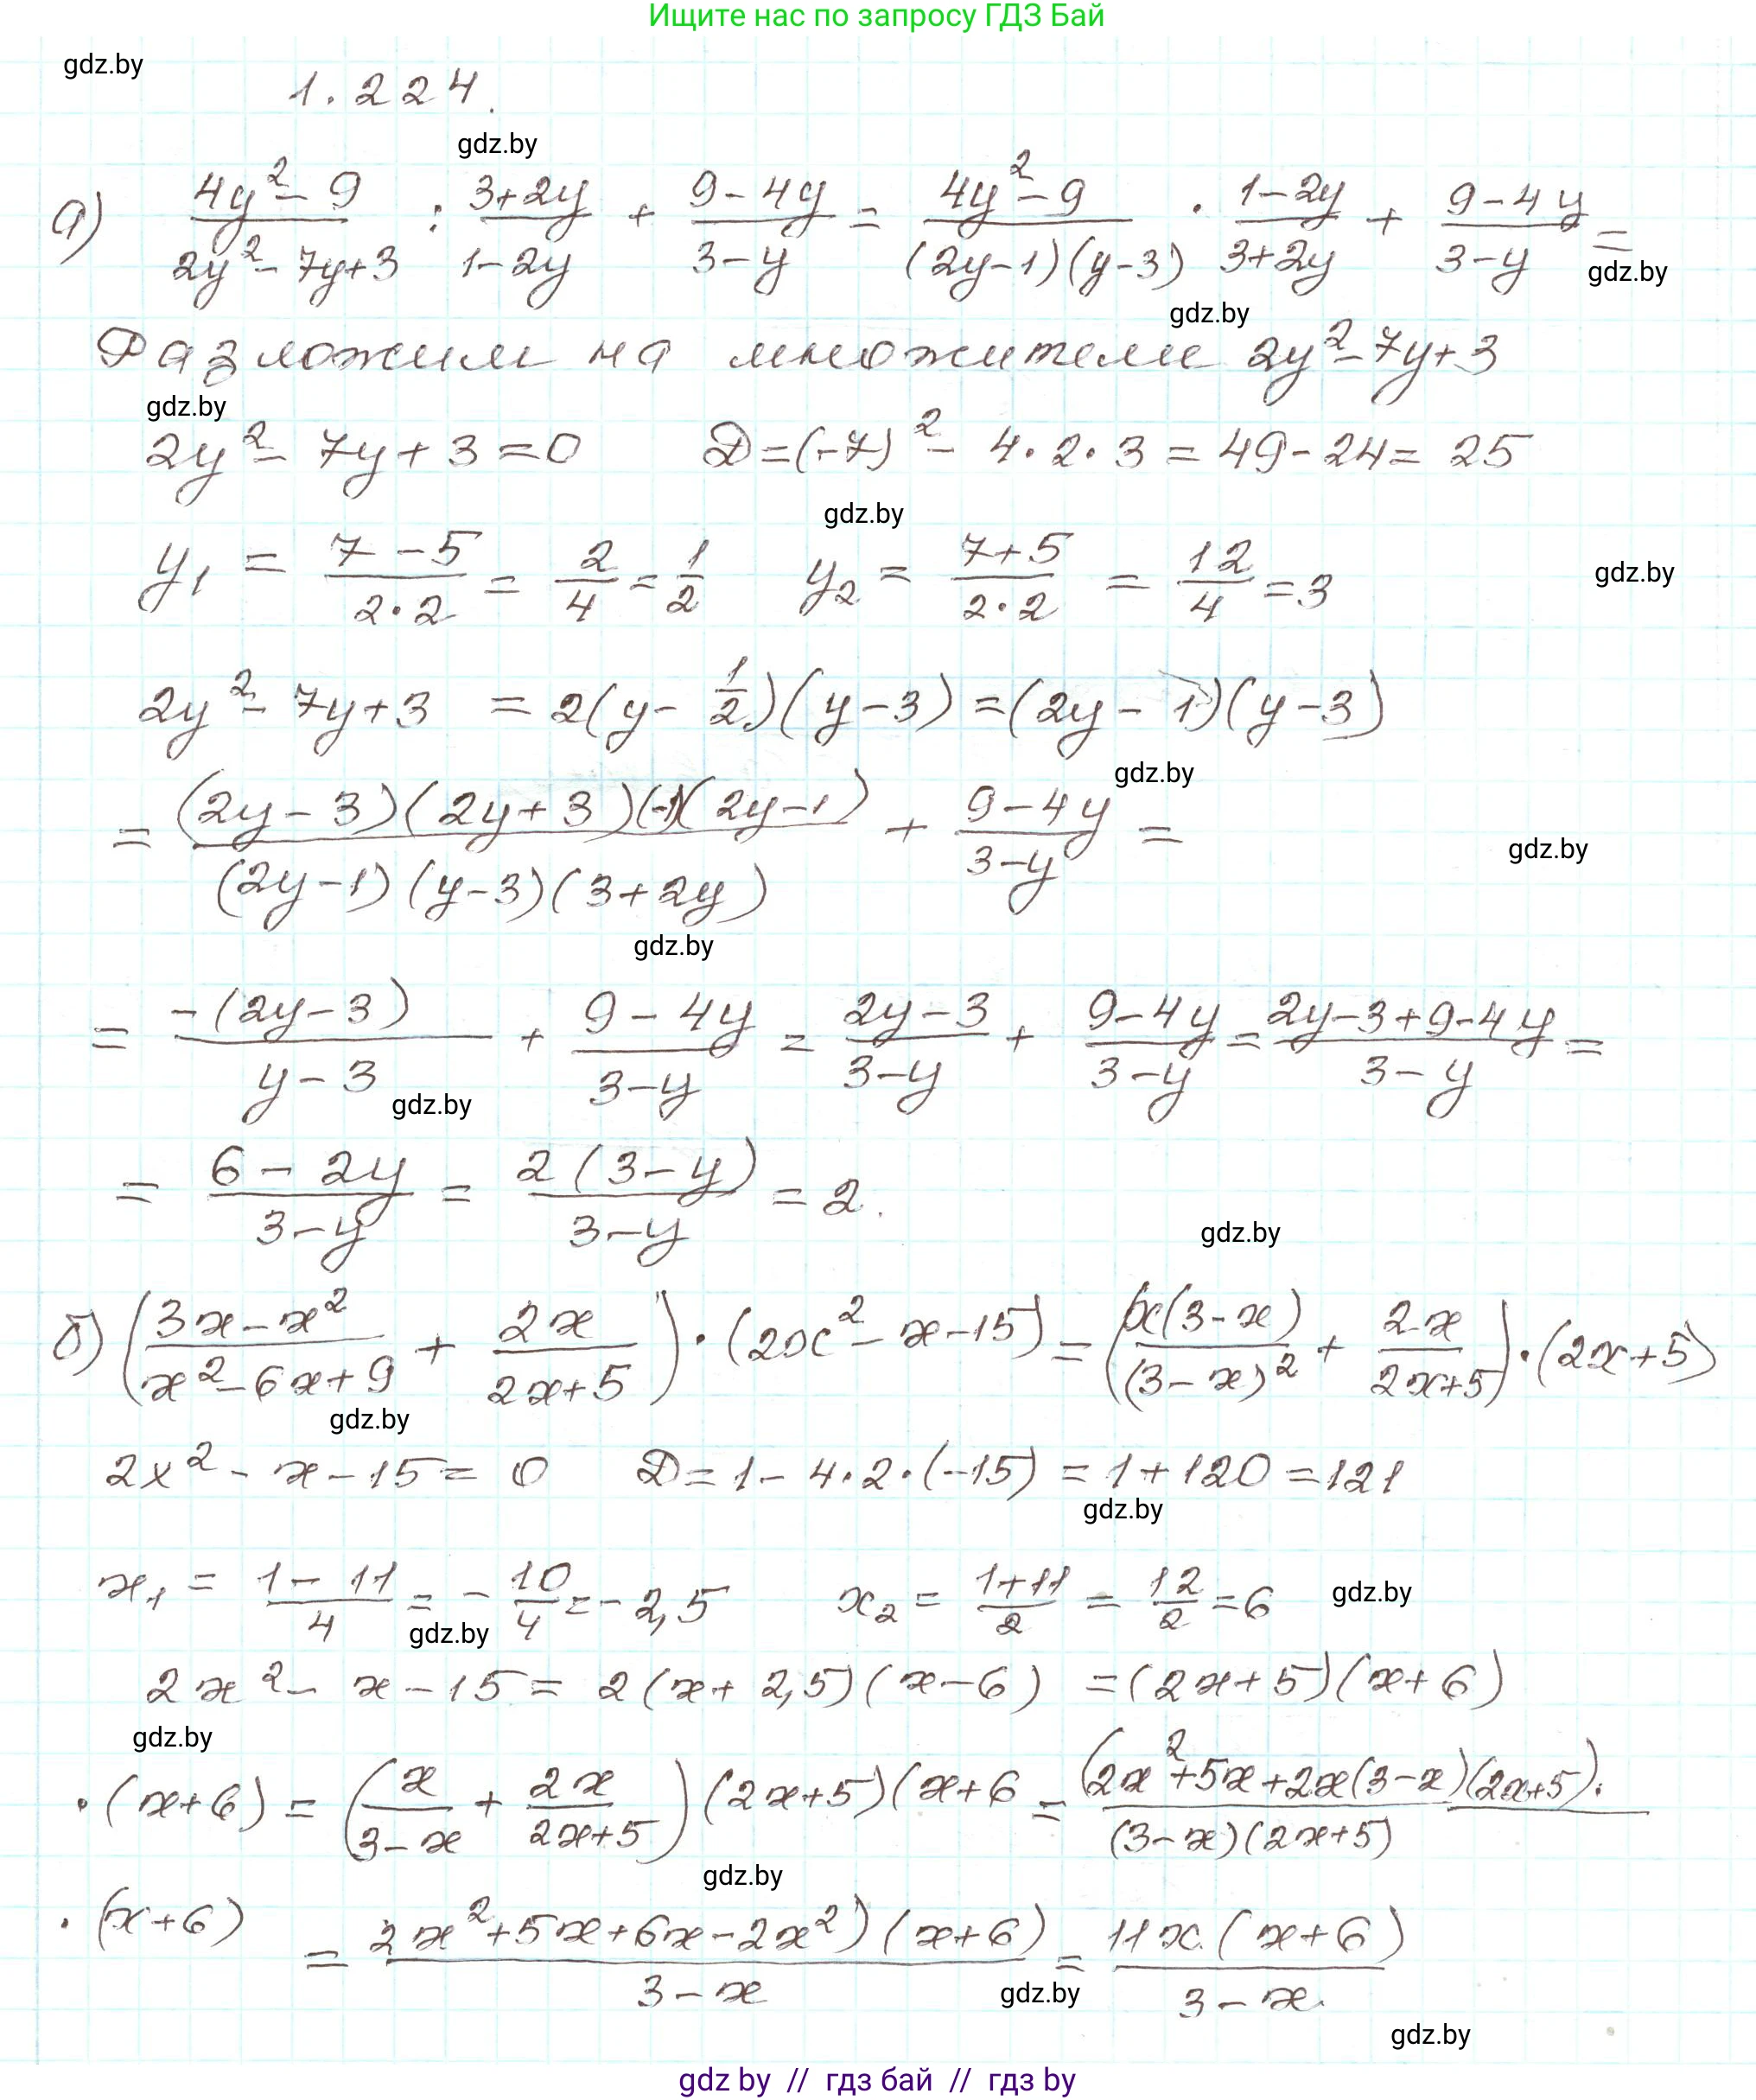 Ищите нас по запросу ГДЗ Бай
gdz.by
1.224.
gdz.by
а) (4y² - 9)/(2y² - 7y + 3) : (3+2y)/(1-2y) + (9-4y)/(3-y) = (4y² - 9)/((2y-1)(y-3)) · (1-2y)/(3+2y) + (9-4y)/(3-y) =
gdz.by
gdz.by
Разложим на множители 2y² - 7y + 3
gdz.by
2y² - 7y + 3 = 0 D = (-7)² - 4·2·3 = 49 - 24 = 25
gdz.by
y₁ = (7-5)/(2·2) = 2/4 = 1/2 y₂ = (7+5)/(2·2) = 12/4 = 3
gdz.by
2y² - 7y + 3 = 2(y - 1/2)(y-3) = (2y - 1)(y-3)
gdz.by
= ((2y-3)(2y+3)(-1)(2y-1))/((2y-1)(y-3)(3+2y)) + (9-4y)/(3-y) =
gdz.by
gdz.by
= (-(2y-3))/(y-3) + (9-4y)/(3-y) = (2y-3)/(3-y) + (9-4y)/(3-y) = (2y-3+9-4y)/(3-y) =
gdz.by
= (6-2y)/(3-y) = (2(3-y))/(3-y) = 2.
gdz.by
б) ((3x-x²)/(x²-6x+9) + 2x/(2x+5)) · (2x² - x - 15) = (x(3-x)/(3-x)² + 2x/(2x+5)) · (2x+5)
gdz.by
2x² - x - 15 = 0 D = 1 - 4·2·(-15) = 1 + 120 = 121
gdz.by
x₁ = (1-11)/4 = -10/4 = -2,5 x₂ = (1+11)/2 = 12/2 = 6
gdz.by
gdz.by
2x² - x - 15 = 2(x + 2,5)(x-6) = (2x+5)(x+6)
gdz.by
· (x+6) = (x/(3-x) + 2x/(2x+5)) (2x+5)(x+6 = (2x²+5x+2x(3-x)(2x+5)·/((3-x)(2x+5))
gdz.by
· (x+6) = (2x²+5x+6x-2x²)(x+6)/(3-x) = 11x(x+6)/(3-x)
gdz.by
gdz.by
gdz by // гдз бай // гдз by